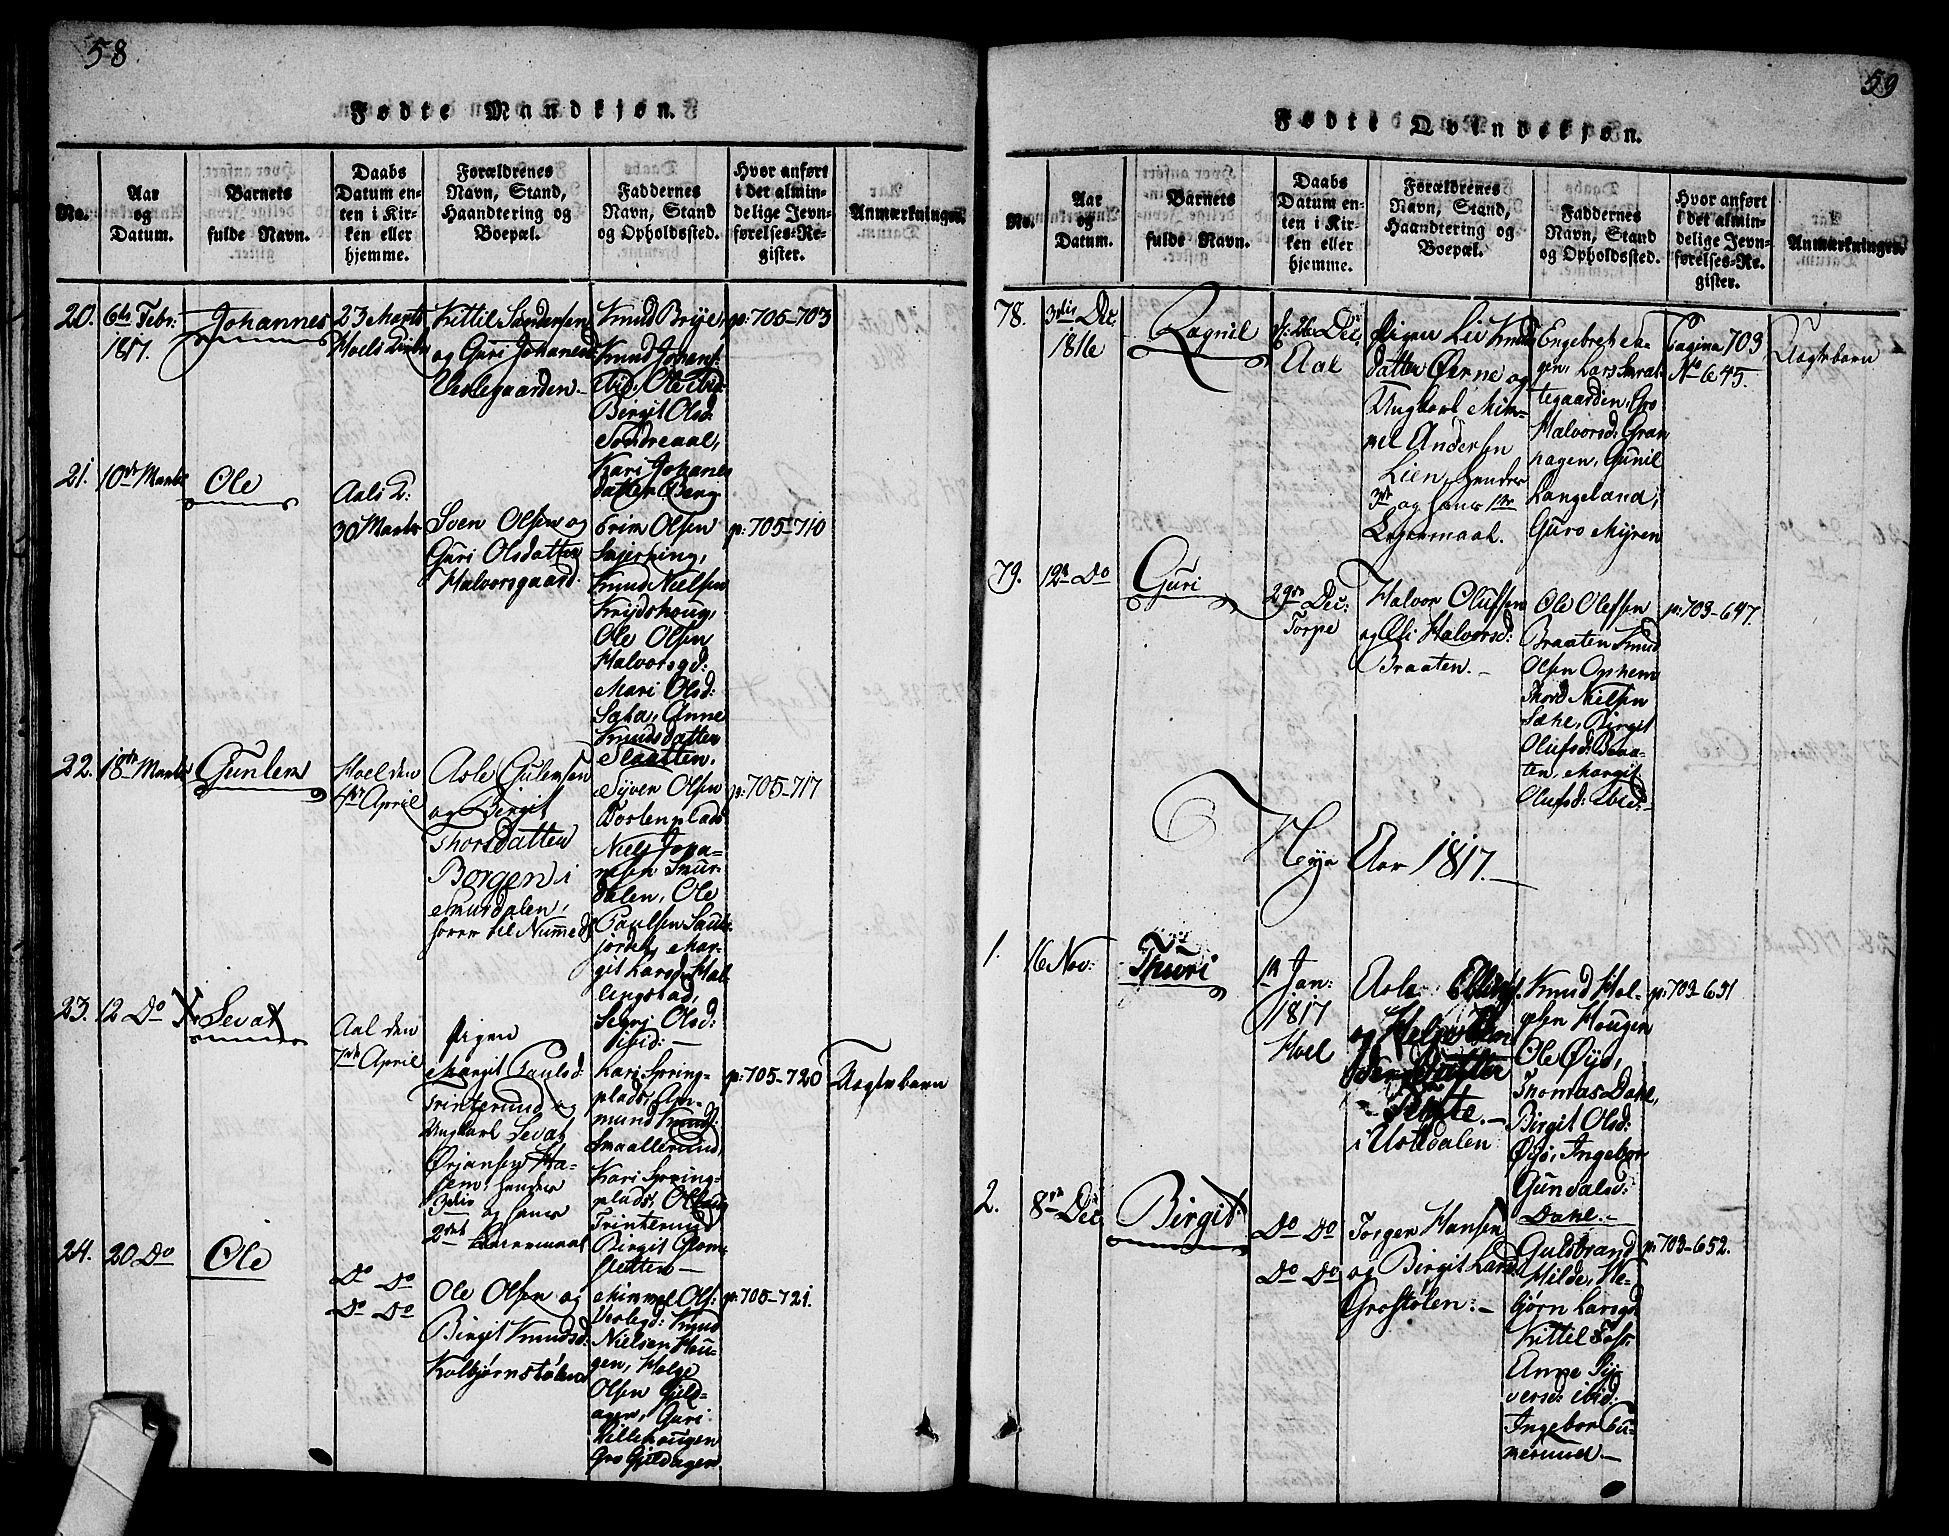 58
Fødte Mandkjøn.
No.
Aar
og
Datum.
Barnets
fulde Navn.
Daabs
Datum en-
ten i Kir-
ken eller
hjemme.
Forældrenes
Navn, Stand,
Haandtering og
Boepæl.
Faddernes
Navn, Stand
og Opholdssted.
Hvor anført
i det almin-
delige Jevn-
førelses-Re-
gister.
Anmærkninger.
20.
6te Febr.
1817.
Johannes
23 Marts
Hoels Kirke
Kittil Sandersen
og Guri Johanesd:
Veslegaarden
Knud Brye,
Knud Johans:
ibid, Ole ibid.
Birgit Olsd:
Sondreaal,
Kari Johanes
datter Berg
p: 705-703
21.
10de Marts
Ole
Aals K:
30 Marts
Sven Olsen og
Guri Olsdatter
Halvorsgaard:
Grim Olsen
Knud Nielsen
Ole Olsen
Halvorsgd:
Mari Olsd:
Sata, Anne
Knudsdatter
Slaatten.
p: 705-710
22.
18de Marts
Gunlem
Hoel den
4de April
Asle Gulensen
og Birgit
Thorsdatter
Borgen i
Smurdalen,
hører til Nummed:
Syver Olsen
Bortenplads
Niels Joha-
nesen Smur-
dalen, Ole
Paulsen Saute-
jordet, Mar-
git Larsd: Hal-
lingstad,
Segri Olsd:
ibid: —
p: 705-717
23.
12 Do
Sevat
Aal den
7de April
Pigen
Margit Paulsd:
Trinterud og
Ungkarl Sevat
Ørjansen
hendes
3die og hans
2det Leiermaal
Kari Spring-
plads, Am-
mund Knuds:
Smaallerud,
Kari Spring-
plads,
Trinterud
Birgit Glom-
sletten —
p: 705-720
Uægte barn
24.
20 Do
Ole
Do Do
Do Do
Ole Olsen og
Birgit Knudsd:
Kolbjørnstølen
Mimmel Ols:
Veslegd: Knud
Nielsen Hou-
gen, Holge
Olsen Gjeld-
agen, Guri
Villehougen
Gro Gjeldagen
p: 705-721.
59
Fødte Qvindekjøn.
No.
Aar
og
Datum.
Barnets
fulde Navn.
Daabs
Datum en-
ten i Kir-
ken eller
hjemme.
Forældrenes
Navn, Stand,
Haandtering og
Boepæl.
Faddernes
Navn, Stand
og Opholdssted.
Hvor anført
i det almin-
delige Jevn-
førelses-Re-
gister.
Anmærkninger.
78.
3die Dec
1816
Ragnil
d: 26 Dec
Aal
Pigen Liv Knuds
datter Øerne og
Ungkarl Mim-
mel Andersen
Lien, hendes
3de og hans 1ste
Leiermaal.
Engebret Ha-
gen, Lars Sørat-
tegaarden, Gro
Halvorsd: Gran-
hagen, Gunil
Langeland,
Guro Myren
Pagina 703
No 645.
Uægte barn
79.
12te Do
Guri
29de Dec:
Torpe
Halvor Olufsen
og Eli Halvorsd:
Braaten. —
Ole Olesen
Braaten Knud
Olsen Ophem
Thord Nielsen
Sæhl, Birgit
Olufsd: Braa-
ten, Margit
Olufsd: ibid: —
p: 703-647.
Nye Aar 1817. —
1.
16 Nov:
Thuri
1te Jan:
1817
Hoel
Asle
og Helge
datter
i Ustedalen
Knud Hol-
gesen Hougen
Ole Øyo,
Thomas Dahl,
Birgit Olsd:
Øyo, Ingebor
Gundalsd:
Dahl. —
p: 703-651
2.
8de Dec:
Birgit
Do Do
Do Do
Torgen Hansen
og Birgit Larsd:
Grostølen: —
Gulsbrand
Hilde, Ve-
bjørn Larsgd
Kittil Foss
Anne Sy-
versd: ibid:
Ingebor Gu-
nerud —
p: 703-652.